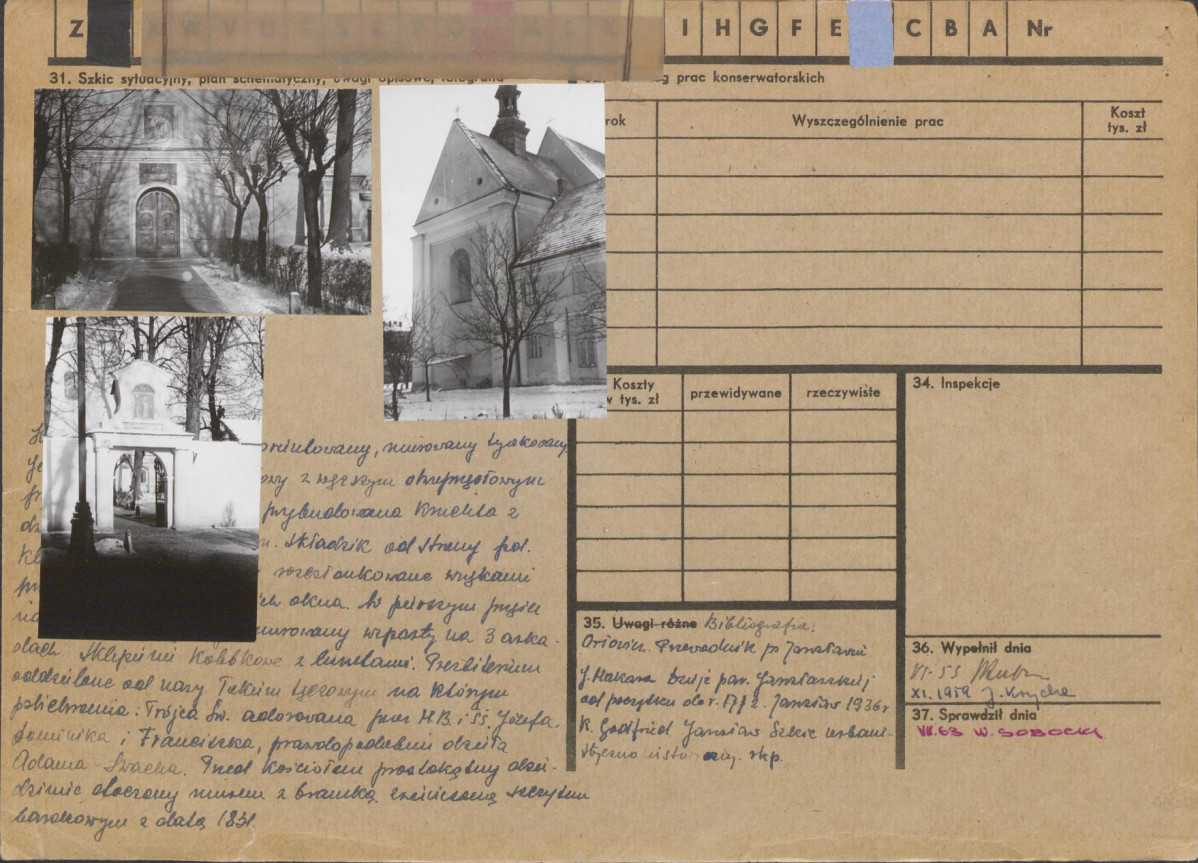 Z
I H G F E C B A Nr
31. Szkic sytuacyjny, plan schematyczny, uwagi opisowe, fotografia
prac konserwatorskich
rok
Wyszczególnienie prac
Koszt
tys. zł
Koszty
w tys. zł
przewidywane
rzeczywiste
34. Inspekcje
murowany tynkowany
z węższym
przybudowana kruchta z
Składzik od strony poł.
rozczłonkowane wnękami
okna. W pierwszym przęśle
murowany wsparty na 3 arka-
dach Sklepienie Kolebkowe z lunetami. Prezbiterium
oddzielone od nawy Tukiem tęczowym na którym
polichromia: Trójca Św. adorowana przez M.B. i SS. Józefa,
Dominika i Franciszka, prawdopodobnie dzieło
Adama Swacha. Przed kościołem prostokątny dzie-
dziniec otoczony murem z bramką zwieńczoną szczytem
barokowym z datą 1831
35. Uwagi różne Bibliografia:
Orłowicz. Przewodnik po Jarosławiu
J. Makara Dzieje par. Jarosławskiej
od początku do r. 1772. Jarosław 1936 r
K. Godfried Jarosław Szkic urbani-
styczno histor. mkp.
36. Wypełnił dnia
VI. 55
XI. 1959 J. Krycha
37. Sprawdził dnia
VII. 63 W. SOBOCKI